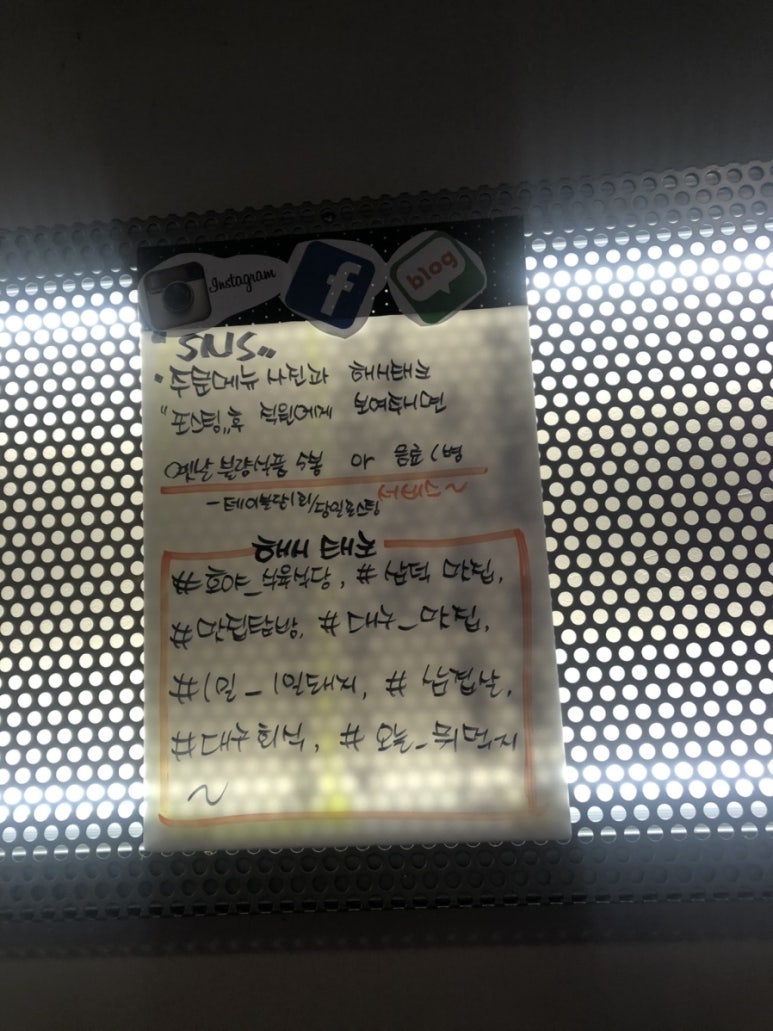 Instagram f blog
"SNS"
"주문메뉴 사진과 해시태그
"포스팅"후 직원에게 보여주시면
옛날 불량식품 5봉 or 음료 1병
서비스~
- 테이블당 1회/당일포스팅
해시태그
#호야_식육식당, #상인 맛집,
#맛집탐방, #대구_맛집,
#1일_1일돼지, #삼겹살,
#대구회식, #오늘_뭐먹지
~